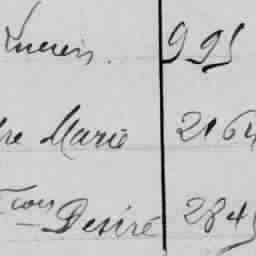 Lucien. 995
re Marie 2164
Fcois Desiré 2845